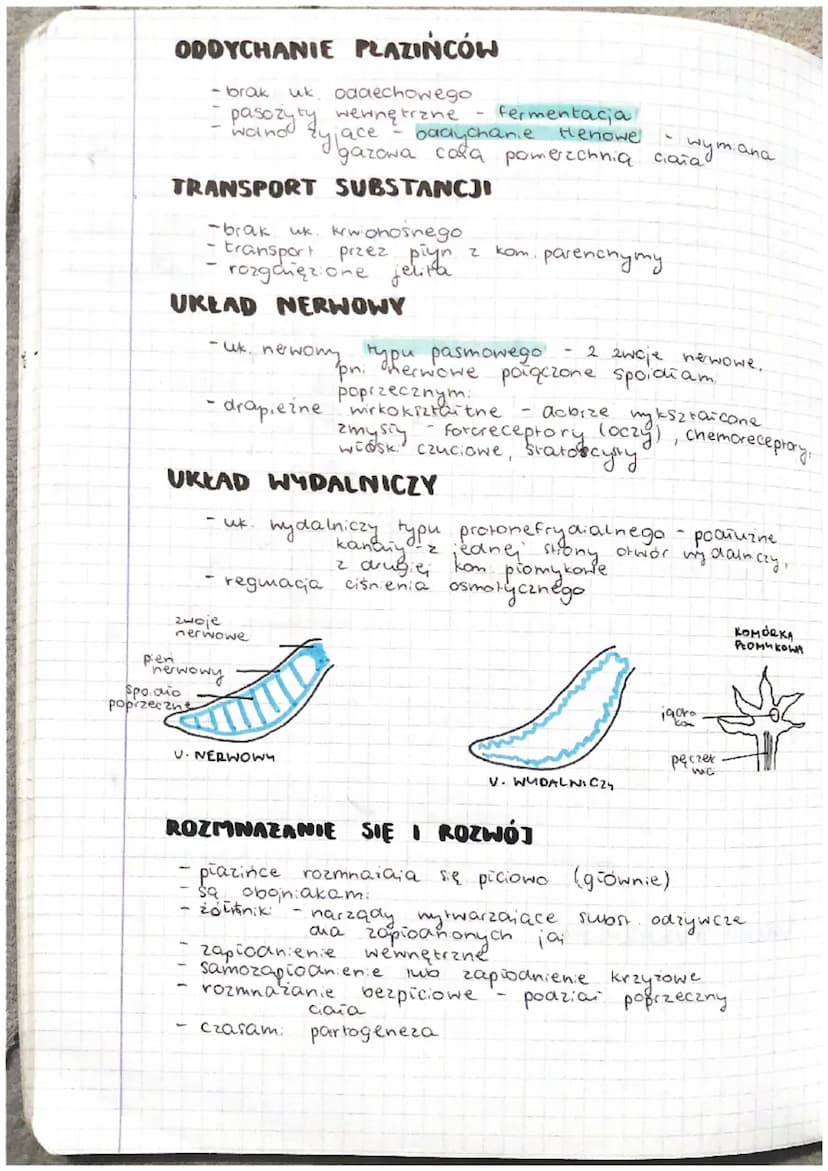 ODDYCHANIE PŁAZIŃCÓW
- brak uk. oddechowego
- pasożyty wewnętrzne - fermentacja
- wolno żyjące - oddychanie tlenowe - wymiana
gazowa całą powierzchnią ciała
TRANSPORT SUBSTANCJI
- brak uk. krwionośnego
- transport przez płyn z kom. parenchymy
- rozgałęzione jelita
UKŁAD NERWOWY
- uk. nerwowy typu pasmowego - 2 zwoje nerwowe,
pni nerwowe połączone spoidłami
poprzecznymi
- drapieżne wirkokształtne - dobrze wykształcone
zmysły - fotoreceptory (oczy), chemoreceptory,
włoski czuciowe, statocysty
UKŁAD WYDALNICZY
- uk. wydalniczy typu protonefrydialnego - podłużne
kanały - z jednej strony otwór wydalniczy,
z drugiej kom. płomykowe
- regulacja ciśnienia osmotycznego
zwoje
nerwowe
pień
nerwowy
spoidło
poprzeczne
U. NERWOWY
U. WYDALNICZY
KOMÓRKA
PŁOMYKOWA
jądro
kom
pęczek
wic
ROZMNAŻANIE SIĘ I ROZWÓJ
- płazińce rozmnażają się płciowo (głównie)
- są obojniakami
- żółtniki - narządy wytwarzające subst. odżywcze
dla zapłodnionych jaj
- zapłodnienie wewnętrzne
- samozapłodnienie lub zapłodnienie krzyżowe
- rozmnażanie bezpłciowe - podział poprzeczny
ciała
- czasami partogeneza